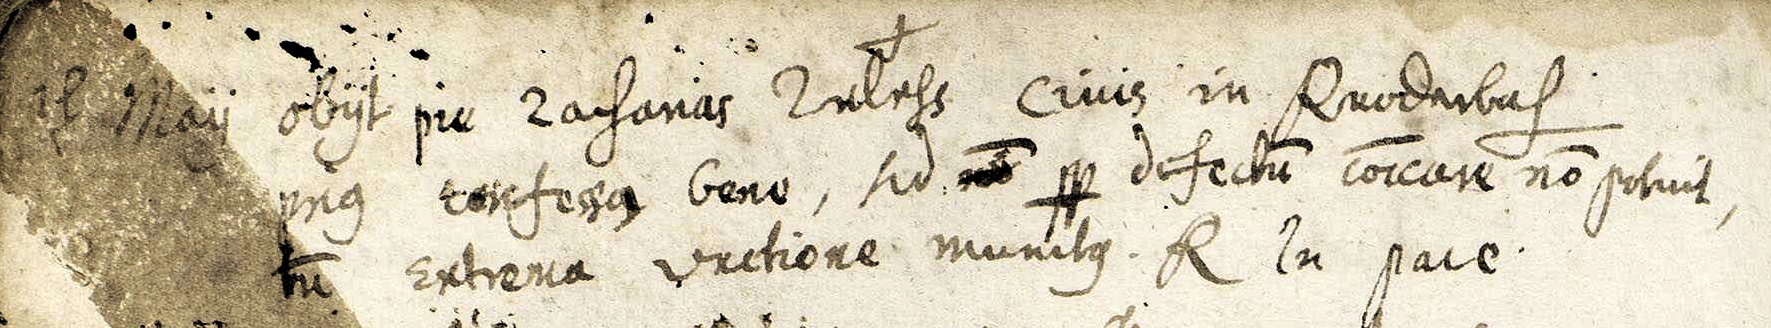 18 Maij obijt pie Zacharias Zueless Civis in Kuoderbach
prig confessg bene, sed pp defectū coīcare nō potuit,
tn̄ extrema unctione munitg. R In pace.